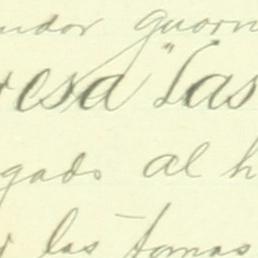 ndor guarn
resa "Las
gado al h
r las tomas